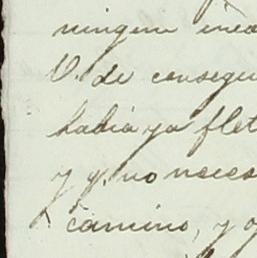 ningun inco
V. de consegui
habia ya flet
y q. no neces
camino, y o